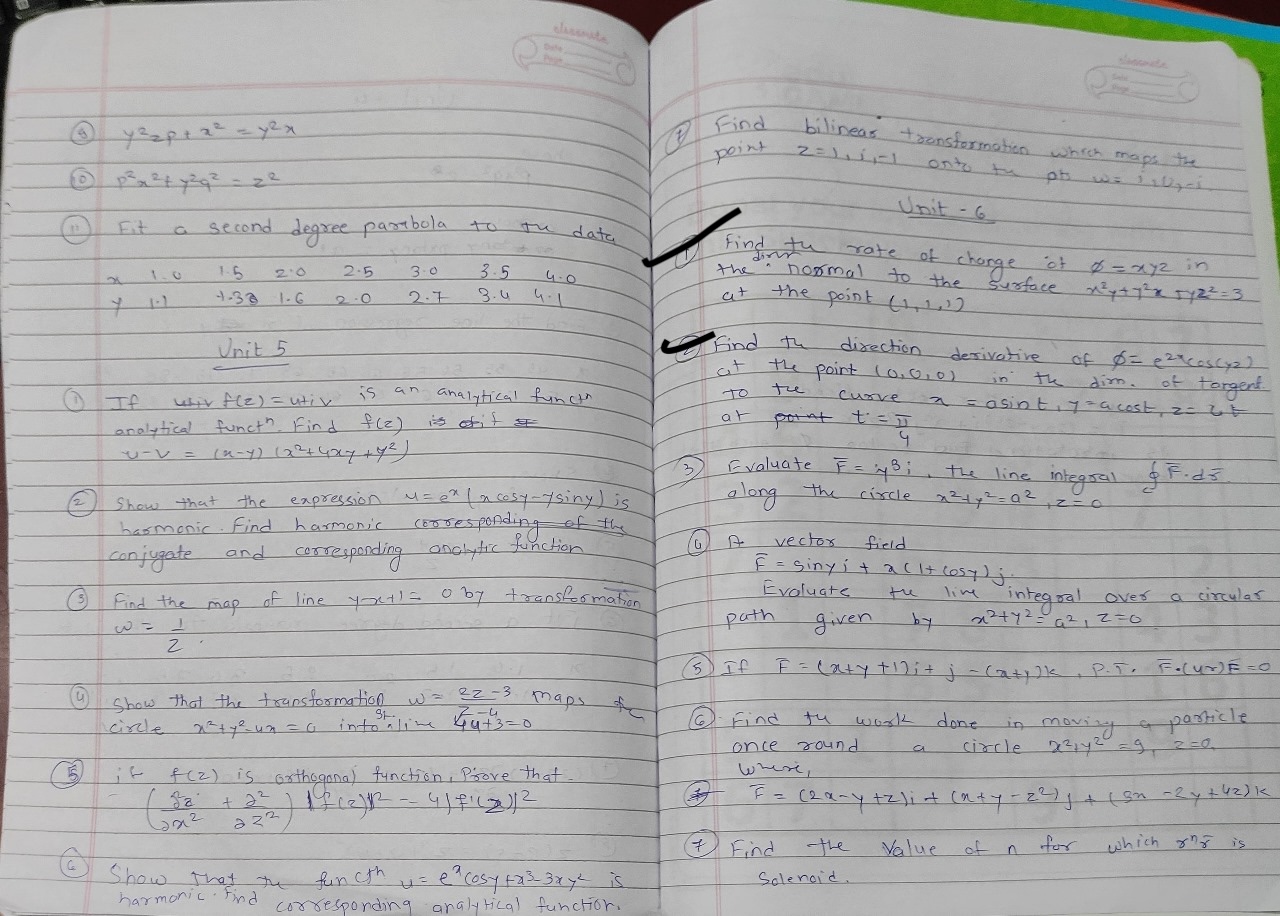 classmate
Date
Page
⑨ y²zp + x² = y²x
⑩ p²x² + y²q² = z²
⑪ Fit a second degree parabola to the data
x 1.0 1.5 2.0 2.5 3.0 3.5 4.0
y 1.1 1.3 1.6 2.0 2.7 3.4 4.1
Unit 5
① If u+iv f(z) = u+iv is an analytical functn
analytical functn. Find f(z) is if
u-v = (x-y) (x²+4xy+y²)
② Show that the expression u = eˣ (x cosy - y siny) is
harmonic. Find harmonic corresponding of the
conjugate and corresponding analytic function
③ Find the map of line y-x+1 = 0 by transformation
w = 1/z.
④ Show that the transformation w = 2z-3/z-4 maps the
circle x²+y²-4x = 0 into st. line 4u+3=0
⑤ if f(z) is orthogonal function, Prove that
(∂²/∂x² + ∂²/∂z²) |f(z)|² = 4|f'(z)|²
⑥ Show that the functn u = eˣcosy + x³-3xy² is
harmonic. Find corresponding analytical function.
classmate
⑦ Find bilinear transformation which maps the
point z = 1, i, -1 onto the pts w = i, 0, -i
Unit - 6
① Find the rate of change of ø = xyz in
the dirn normal to the surface x²y+y²x+yz²=3
at the point (1,1,1)
② Find the direction derivative of ø = e²ˣcos(yz)
at the point (0,0,0) in the dirn. of tangent
to the curve x = asint, y = acost, z = at
at point t = π/4
③ Evaluate F̄ = y³i, the line integral ∮ F̄.dr̄
along the circle x²+y²=a², z=0
④ A vector field
F̄ = siny i + x(1+cosy) j.
Evaluate the line integral over a circular
path given by x²+y²=a², z=0
⑤ If F̄ = (x+y+1)i + j - (x+y)k, P.T. F̄.(curl)F̄ = 0
⑥ Find the work done in moving a particle
once round a circle x²+y²=9, z=0
where,
F̄ = (2x-y+z)i + (x+y-z²)j + (3x-2y+4z)k
⑦ Find the value of n for which rⁿr̄ is
Solenoid.